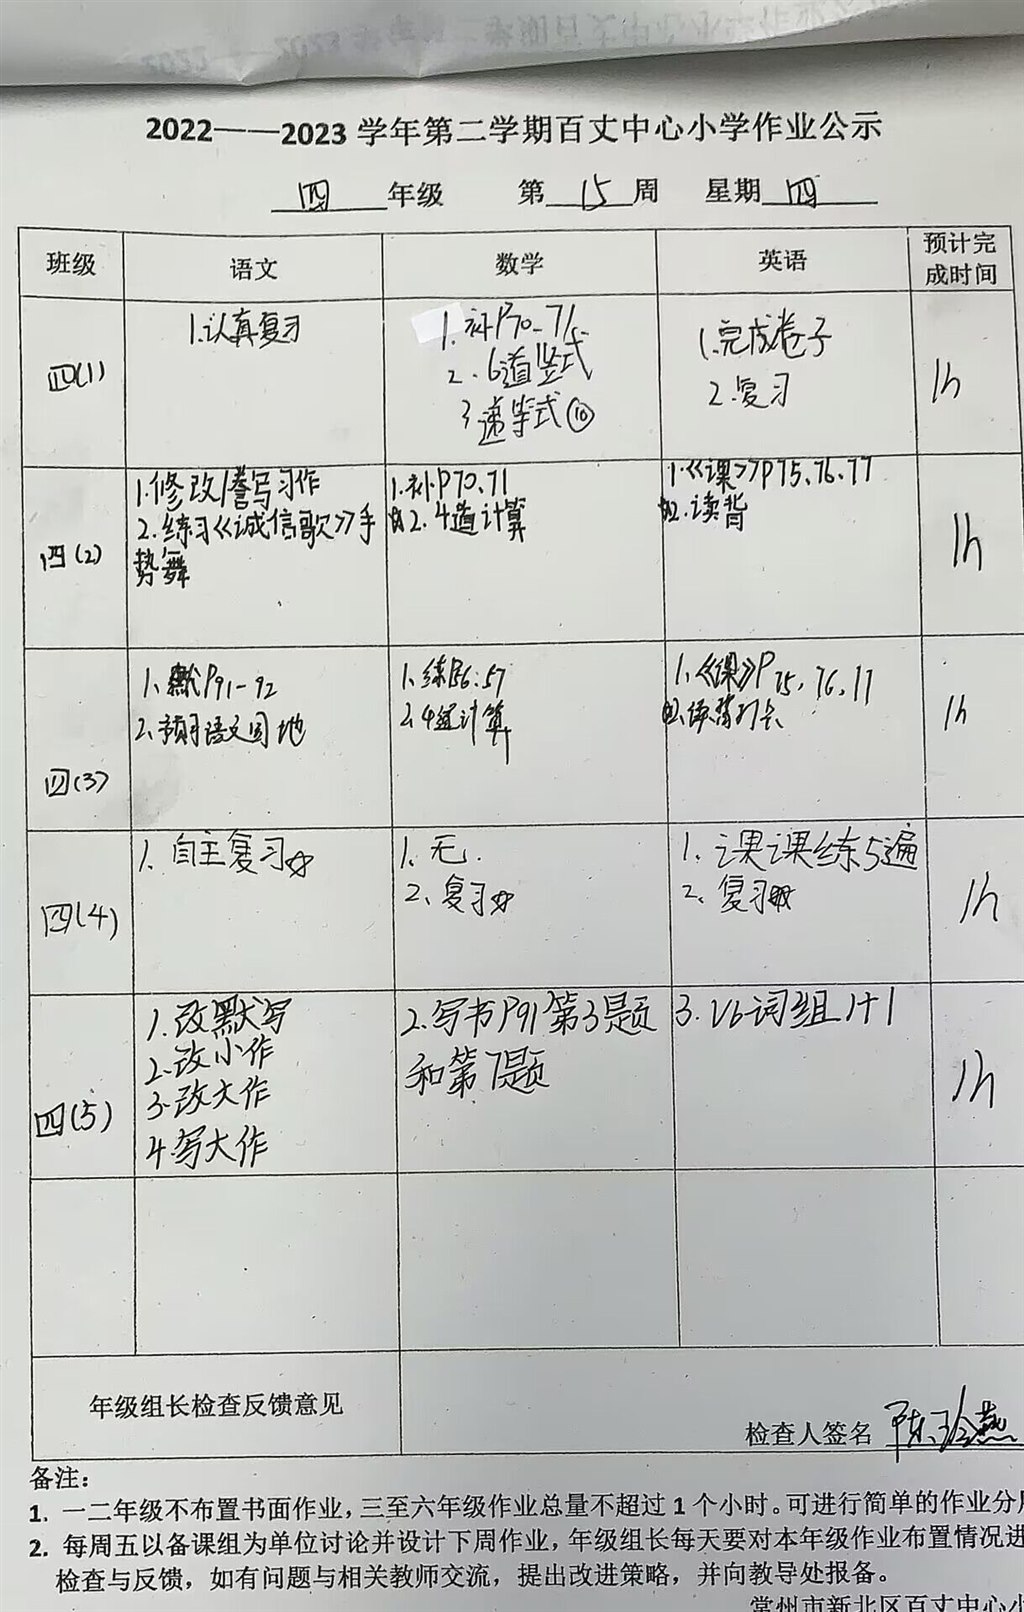 2022——2023 学年第二学期百丈中心小学作业公示
四 年级 第 15 周 星期 四
班级 语文 数学 英语 预计完
成时间
四(1)
1.认真复习
1.补P70-71
2.6道竖式
3.递等式⑩
1.完成卷子
2.复习
1h
四(2)
1.修改/誊写习作
2.练习《诚信歌》手
势舞
1.补P70、71
2.4道计算
1.《课》P75、76、77
2.读背
1h
四(3)
1、P91-92
2、预习语文园地
1、练P56、57
2、4道计算
1、《课》P75、76、77
1h
四(4)
1、自主复习
1、无.
2、复习
1、课课练5遍
2、复习
1h
四(5)
1.改默写
2.改小作
3.改大作
4.写大作
2.写书P91第3题
和第7题
3.U6词组1+1
1h
年级组长检查反馈意见
检查人签名 陈玲燕
备注：
1. 一二年级不布置书面作业，三至六年级作业总量不超过 1 个小时。可进行简单的作业分
2. 每周五以备课组为单位讨论并设计下周作业，年级组长每天要对本年级作业布置情况进
检查与反馈，如有问题与相关教师交流，提出改进策略，并向教导处报备。
常州市新北区百丈中心小